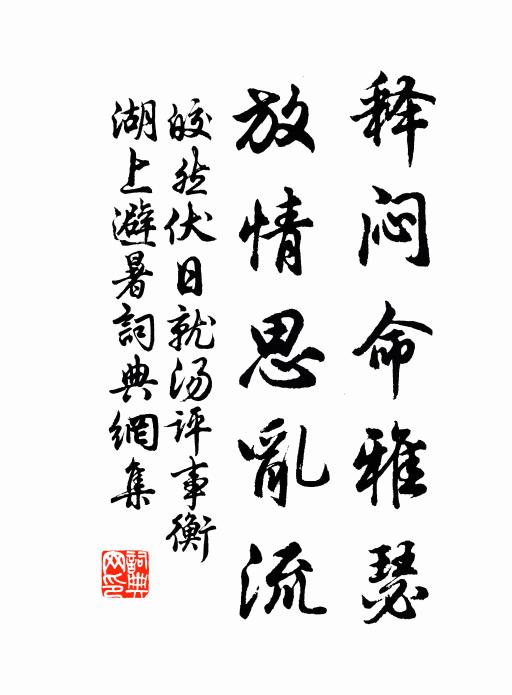 释闷命雅瑟
放情思亂流
皎然伏日就汤评事衡
湖上避暑詞典網集
詞典
网印